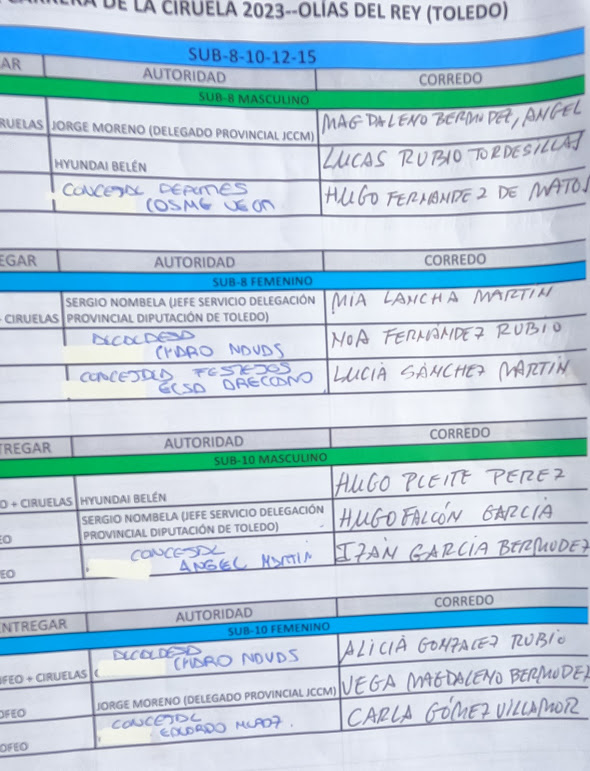 CARRERA DE LA CIRUELA 2023--OLÍAS DEL REY (TOLEDO)
SUB-8-10-12-15
AR AUTORIDAD CORREDO
SUB-8 MASCULINO
RUELAS JORGE MORENO (DELEGADO PROVINCIAL JCCM) MAGDALENO BERMUDEZ, ANGEL
HYUNDAI BELÉN LUCAS RUBIO TORDESILLAS
CONCEJAL DEPORTES
COSME HUGO FERNANDEZ DE MATOS
EGAR AUTORIDAD CORREDO
SUB-8 FEMENINO
SERGIO NOMBELA (JEFE SERVICIO DELEGACIÓN
CIRUELAS PROVINCIAL DIPUTACIÓN DE TOLEDO) MIA LANCHA MARTIN
ALCALDESA
CHARO NAVAS NOA FERNÁNDEZ RUBIO
CONCEJALA FESTEJOS
ELSA LUCIA SÁNCHEZ MARTÍN
TREGAR AUTORIDAD CORREDO
SUB-10 MASCULINO
O + CIRUELAS HYUNDAI BELÉN HUGO PLEITE PEREZ
SERGIO NOMBELA (JEFE SERVICIO DELEGACIÓN
EO PROVINCIAL DIPUTACIÓN DE TOLEDO) HUGO FALCÓN GARCÍA
CONCEJAL
EO ANGEL MARTIN IZAN GARCIA BERMUDEZ
NTREGAR AUTORIDAD CORREDO
SUB-10 FEMENINO
ALCALDESA
OFEO + CIRUELAS CHARO NAVAS ALICIA GONZALEZ RUBIO
OFEO JORGE MORENO (DELEGADO PROVINCIAL JCCM) VEGA MAGDALENO BERMUDEZ
CONCEJAL
OFEO EDUARDO CARLA GÓMEZ VILLAMOR